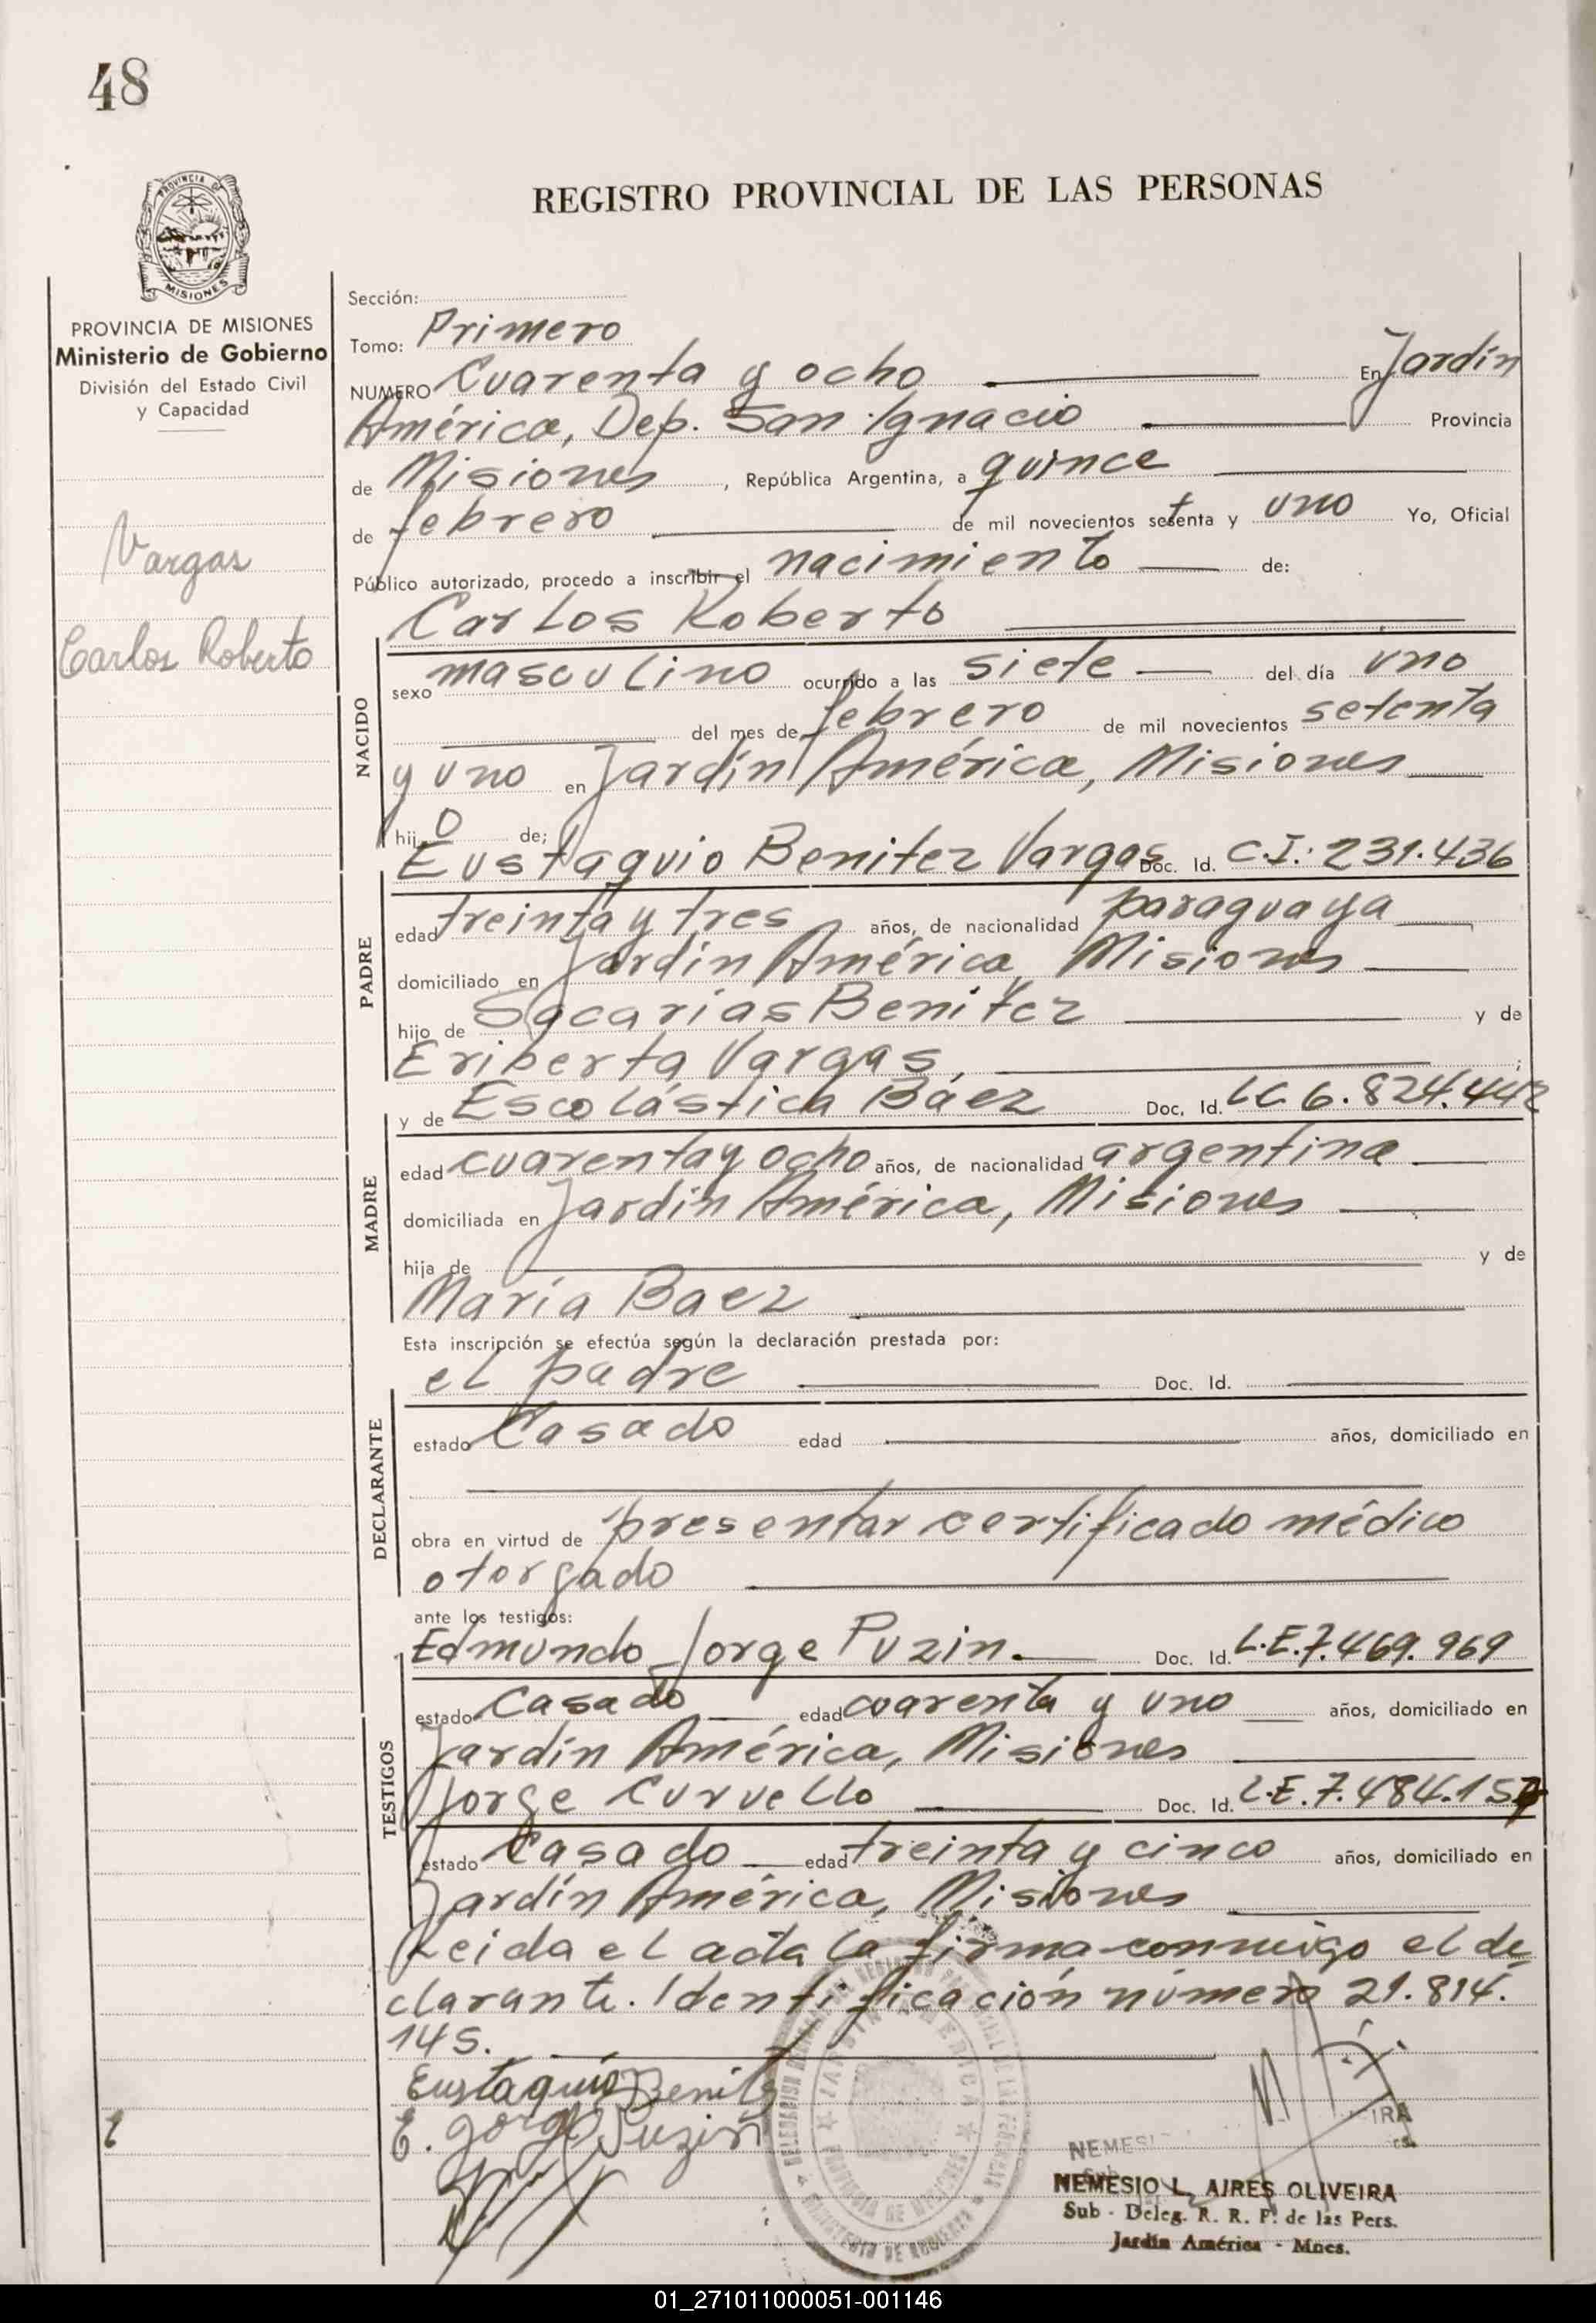 48
REGISTRO PROVINCIAL DE LAS PERSONAS
PROVINCIA DE
MISIONES
PROVINCIA DE MISIONES
Ministerio de Gobierno
División del Estado Civil
y Capacidad
Vargas
Carlos Roberto
Sección:
Tomo: Primero
NUMERO Cuarenta y ocho En Jardín
América, Dep. San Ignacio Provincia
de Misiones, República Argentina, a quince
de febrero de mil novecientos setenta y uno Yo, Oficial
Público autorizado, procedo a inscribir el nacimiento de:
Carlos Roberto
NACIDO
sexo masculino ocurrido a las siete del día uno
del mes de febrero de mil novecientos setenta
y uno en Jardín América, Misiones
hijo de;
Eustaquio Benitez Vargas Doc. Id. C.I: 231.436
PADRE
edad treinta y tres años, de nacionalidad paraguaya
domiciliado en Jardín América, Misiones
hijo de Sacarias Benitez y de
Eriberta Vargas, ;
y de Escolástica Báez Doc. Id. LC. 6.824.442
MADRE
edad cuarenta y ocho años, de nacionalidad argentina
domiciliada en Jardín América, Misiones
hija de y de
María Baez
Esta inscripción se efectúa según la declaración prestada por:
el padre Doc. Id.
DECLARANTE
estado Casado edad años, domiciliado en
obra en virtud de presentar certificado médico
otorgado
ante los testigos:
Edmundo Jorge Puzin. Doc. Id. L.E.7.469.969
TESTIGOS
estado Casado edad cuarenta y uno años, domiciliado en
Jardín América, Misiones
Jorge Curvello Doc. Id. L.E.7.484.15
estado Casado edad treinta y cinco años, domiciliado en
Jardín América, Misiones
Leida el acta la firma conmigo el de
clarante. Identificación número 21.814.
145.
Eustaquio Benitez
E. Jorge Puzin
JARDIN AMERICA
PROVINCIA DE MISIONES
MINISTERIO DE GOBIERNO
NEMESI
IRA
NEMESIO L. AIRES OLIVEIRA
Sub - Deleg. R. R. P. de las Pers.
Jardín América - Mnes.
01_271011000051-001146